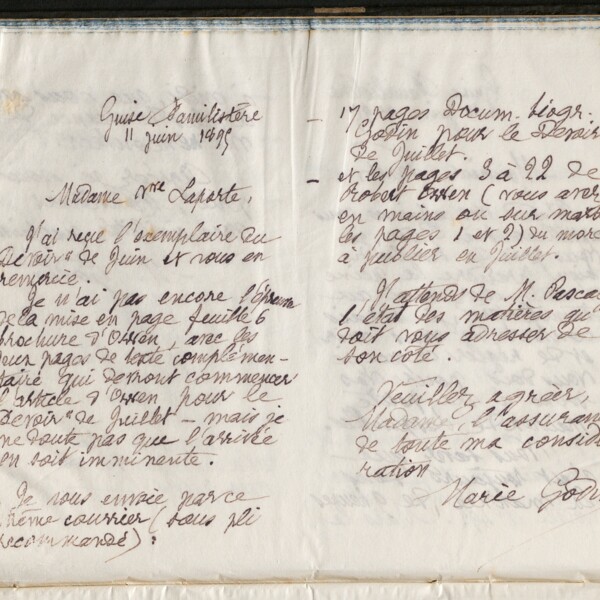 Guise Familistère
11 juin 1895
Madame Vve Laporte,
J'ai reçu l'exemplaire du
Devoir" de Juin et vous en
remercie.
Je n'ai pas encore l'épreuve
de la mise en page feuille 6
brochure d'Owen, avec les
deux pages de texte complémen-
taire qui devront commencer
l'article d'Owen pour le
Devoir" de Juillet – mais je
ne doute pas que l'arrivée
en soit imminente.
Je vous envoie par ce
même courrier (sous pli
recommandé):
– 17 pages Docum. biogr.
Godin pour le Devoir
de Juillet.
– et les pages 3 à 22 de
Robert Owen (vous avez
en mains ou sur marb
les pages 1 et 2) du morc
à publier en Juillet.
J'attends de M. Pascal
l'état des matières qu'
doit vous adresser de
son côté.
Veuillez agréer,
Madame, l'assuran
de toute ma considé
ration
Marie Godin